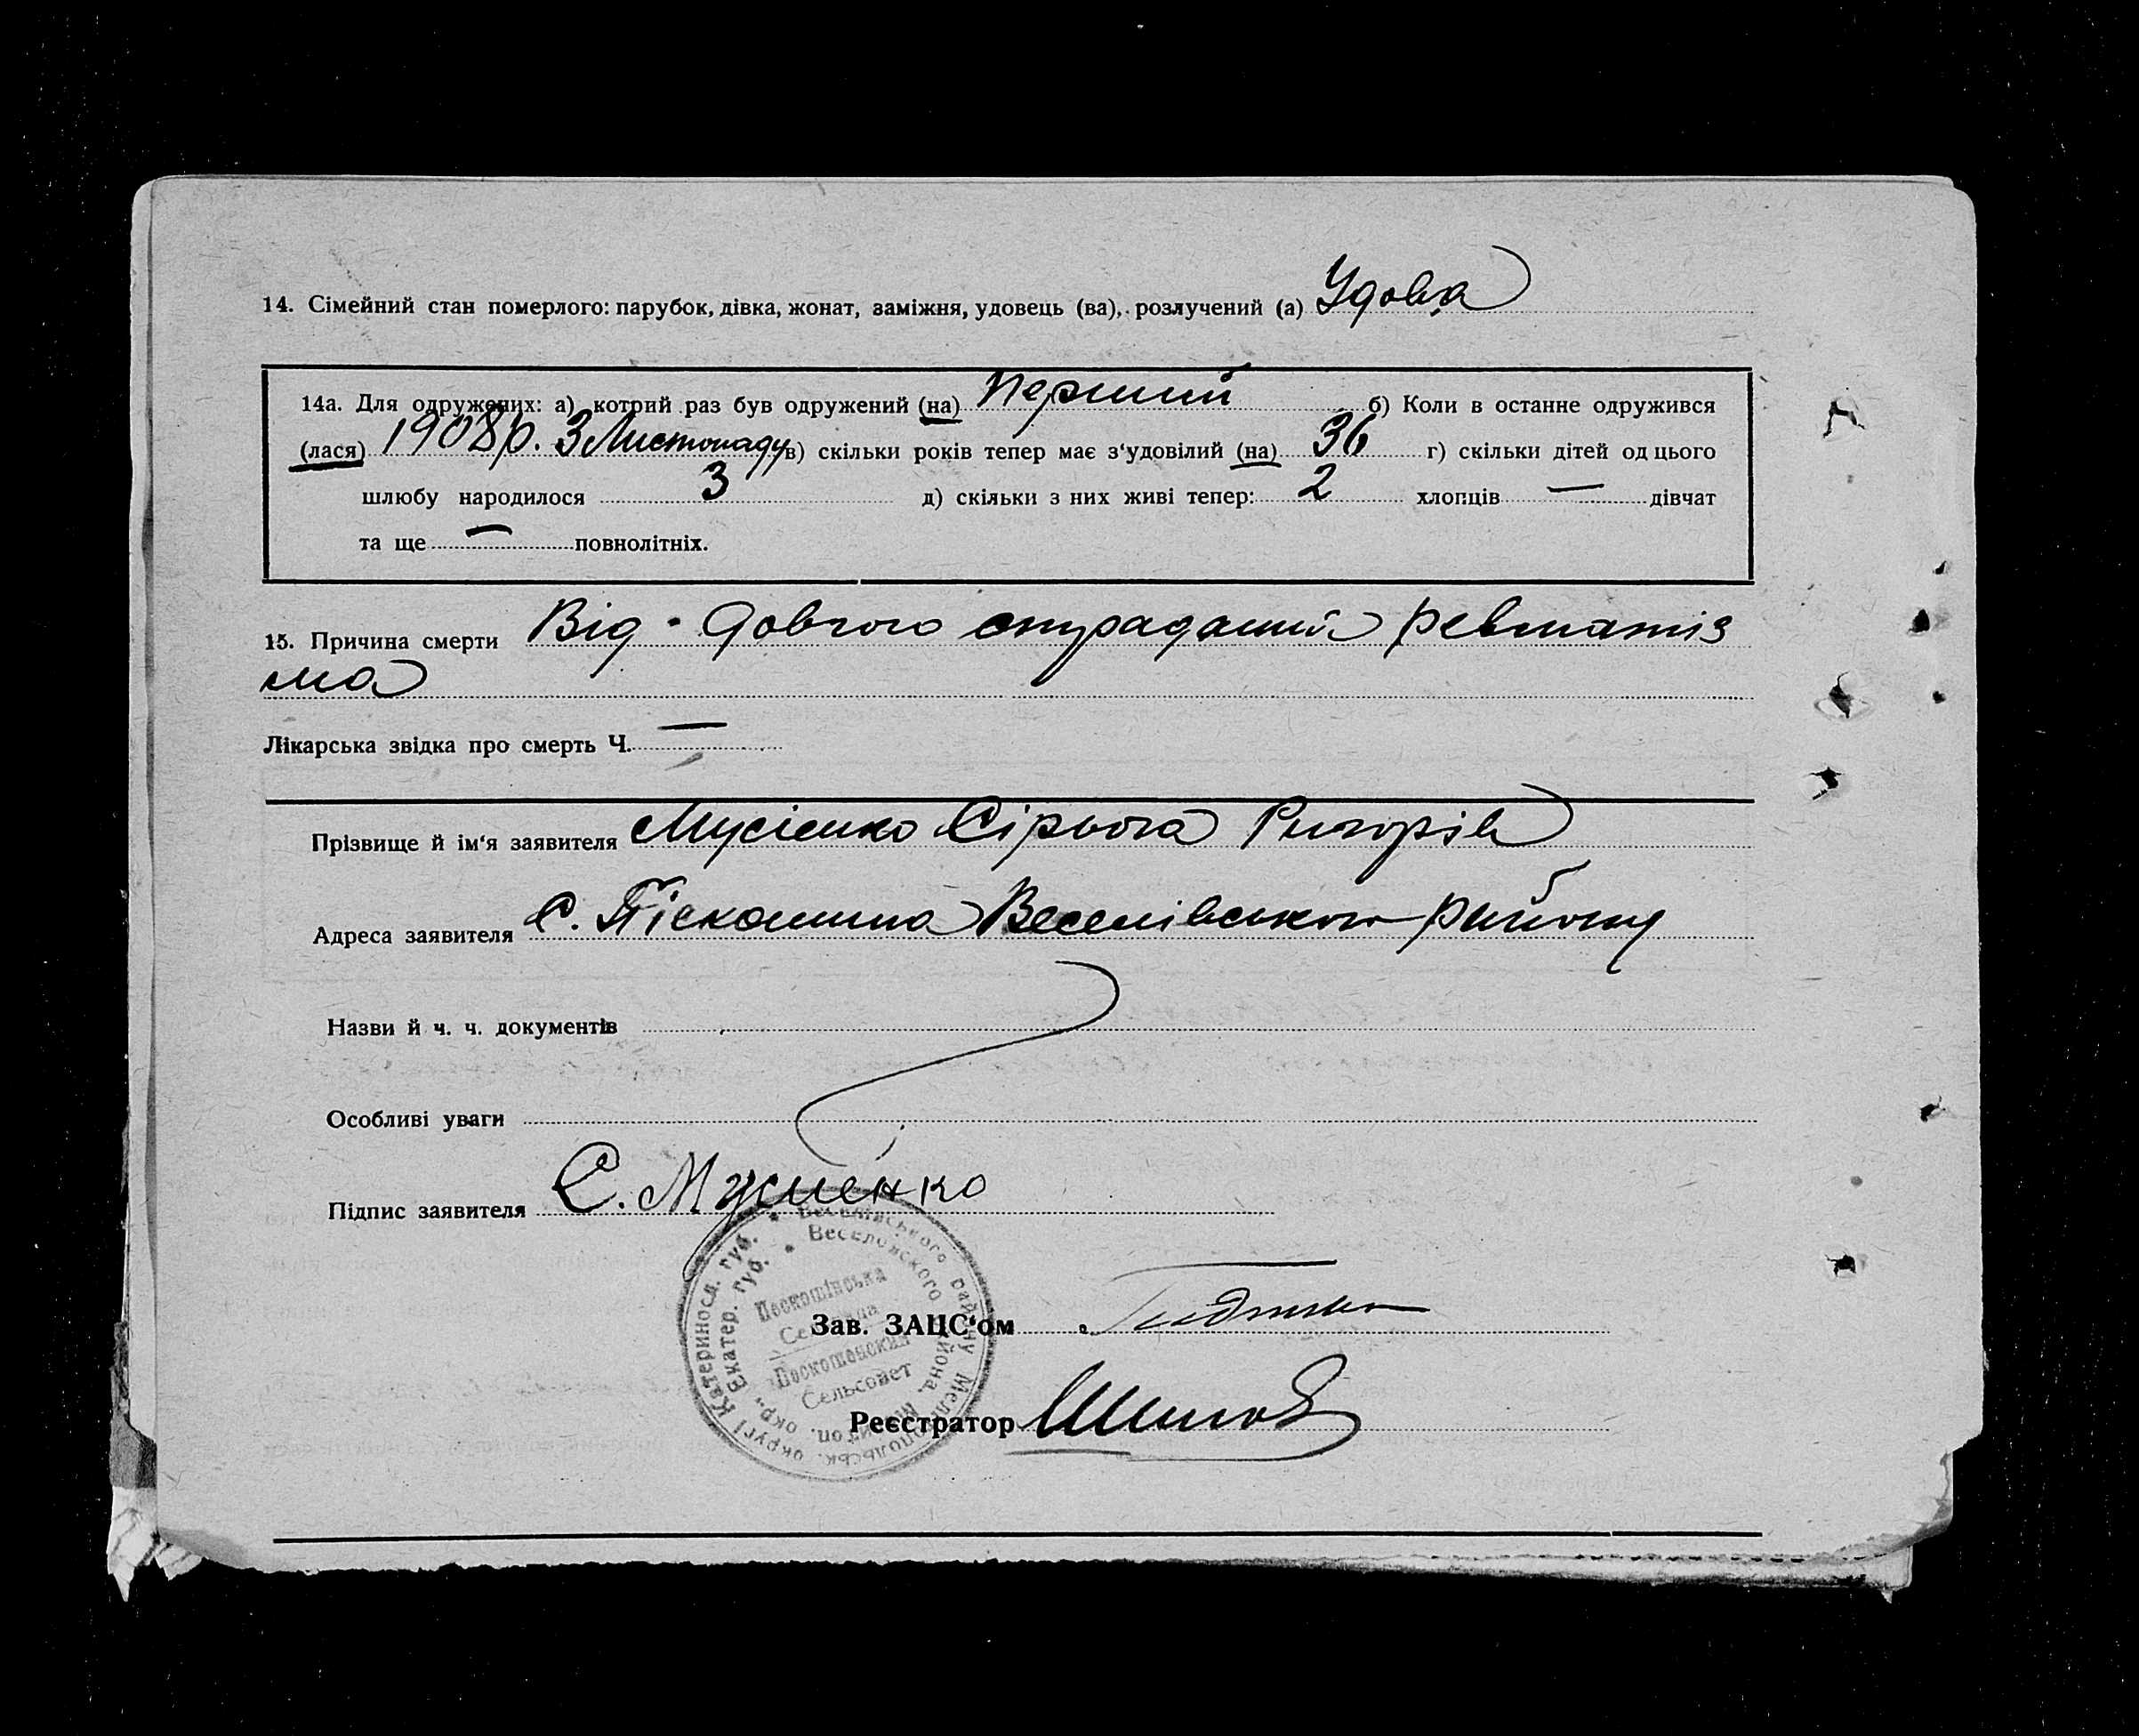 14. Сімейний стан померлого: парубок, дівка, жонат, заміжня, удовець (ва), розлучений (а) Удова
14а. Для одружених: а) котрий раз був одружений (на) Перший б) Коли в останне одружився
(лася) 1908 р. 3 Листопаду в) скільки років тепер має з‘удовілий (на) 36 г) скільки дітей од цього
шлюбу народилося 3 д) скільки з них живі тепер: 2 хлопців — дівчат
та ще — повнолітніх.
15. Причина смерти Від довгого страдания ревматіз
ма
Лікарська звідка про смерть Ч. —
Прізвище й ім‘я заявителя Мусієнко Сірьога Григорів
Адреса заявителя С. Піскошина Веселівського району
Назви й ч. ч. документів
Особливі уваги
Підпис заявителя С. Мусиенко
Зав. ЗАЦС‘ом
Реєстратор
Катериносл. губ. • Веселівського району Мелітопольськ. округі
Екатер. губ. • Веселовского района, Мелитоп. окр.,
Пескошінська
Сельрада
Пескошенский
Сельсовет